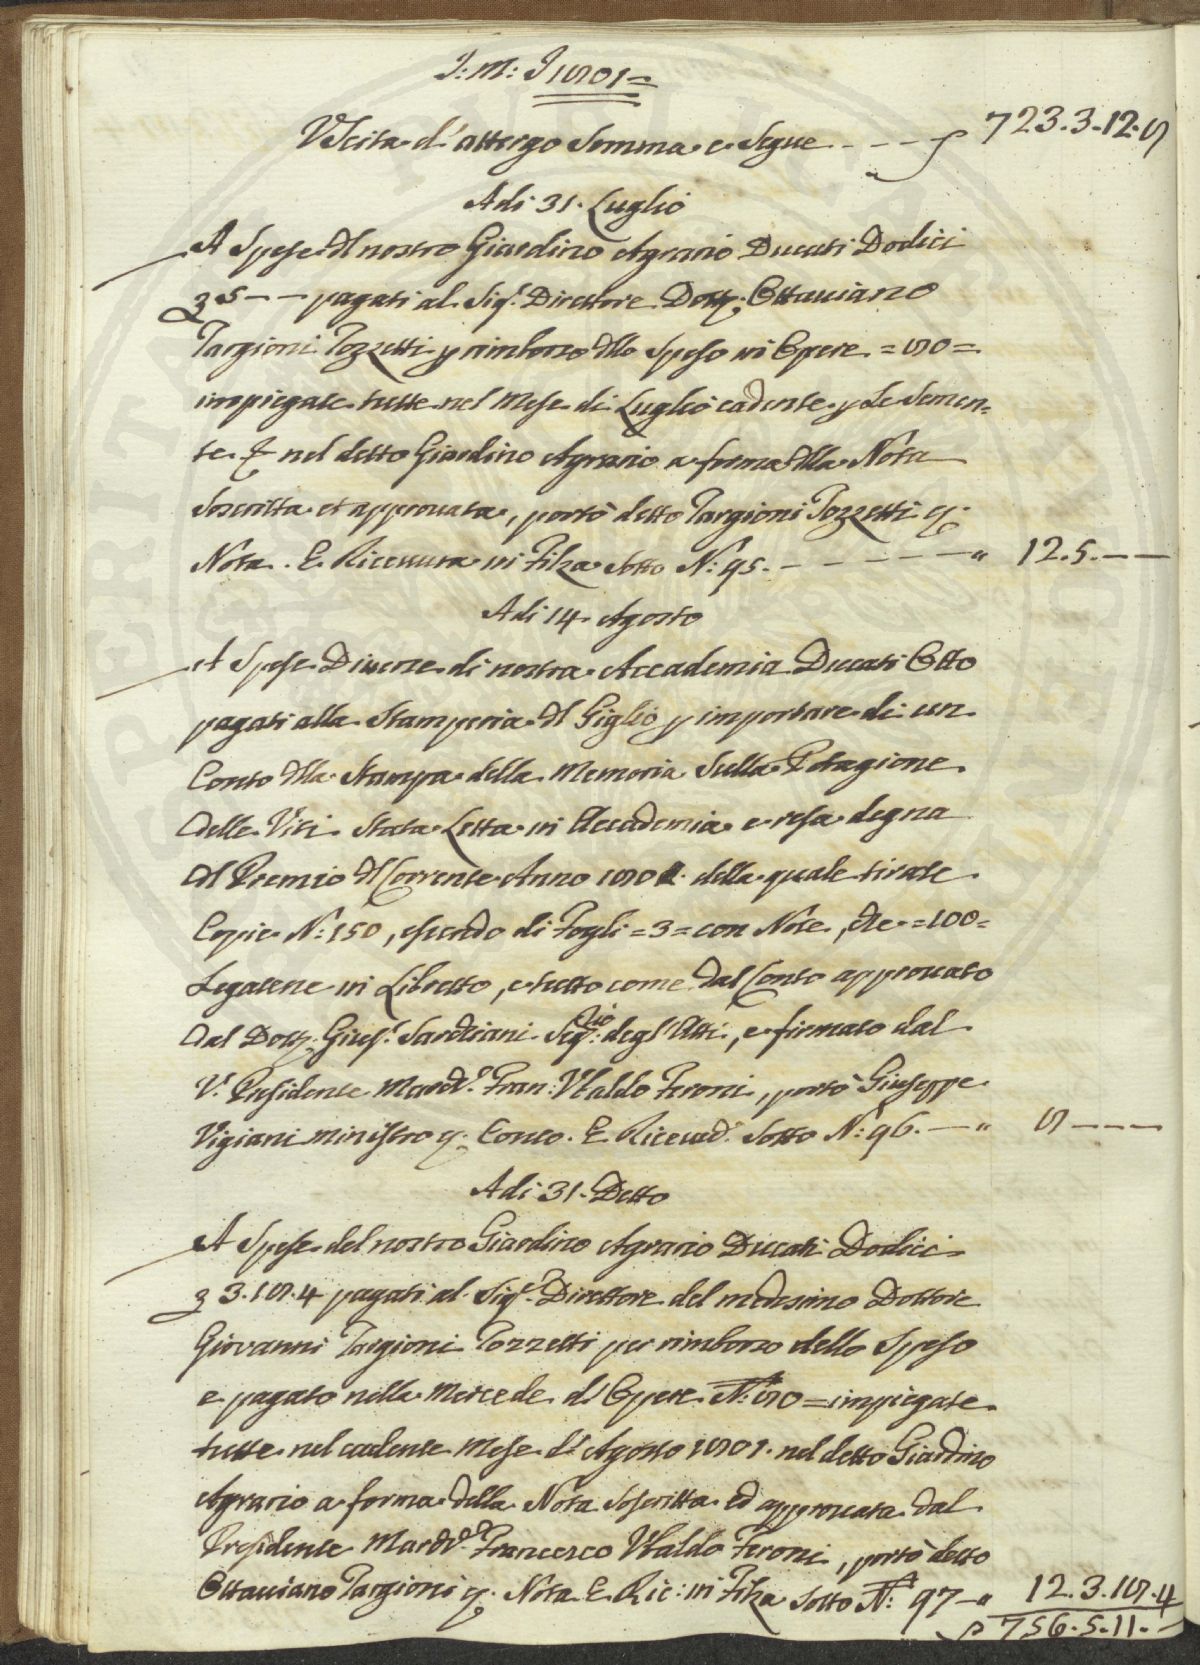 J: M: J 1801=
Uscita d'attergo Somma e Segue - - - ƒ 723.3.12.8
Adi 31. Luglio
A Spese dl nostro Giardino Agrario Ducati Dodici
3 5 - - pagati al Sigr. Direttore Dott. Ottaviano
Targioni Tozzetti p rimborso dlle Spese in Opere =80=
impiegate tutte nel Mese di Luglio cadente p Le Semen=
te & nel detto Giardino Agrario a forma dlla Nota
Soscritta et approvata, portò detto Targioni Tozzetti p.
Nota. E. Ricevuta in Filza Sotto N: 95. - - - - - " 12.5.- -
Adi 14 Agosto
A Spese Diverse di nostra Accademia Ducati Otto
pagati alla Stamperia dl Giglio p importare di un
Conto dlla Stampa della Memoria Sulla Potagione
delle Viti Stata Letta in Accademia e resa degna
dl Premio dl Corrente Anno 1801 della quale tirate
Copie N: 150, essendo di Fogli =3= con Note, &e =100=
Legatene in Libretto, e tutto come dal Conto approvato
dal Dott. Giuse. Sarchiani Segrio: degl'Atti, e firmato dal
V. Presidente March. Fran: Ubaldo Feroni, portò Giuseppe
Vigiani Ministro p. Conto. E. Ricevd. Sotto N: 96. - " 8 - - -
Adi 31. Detto
A Spese del nostro Giardino Agrario Ducati Dodici
3 3.18.4 pagati al Sigr. Direttore del medesimo Dottore
Giovanni Targioni Tozzetti per rimborso dello Speso
e pagato nella Mercede d'Opere N: 80= impiegate
tutte nel cadente Mese d'Agosto 1801. nel detto Giardino
Agrario a forma della Nota Soscritta ed approvata dal
Presidente March. Francesco Ubaldo Feroni, portò detto
Ottaviano Targioni p. Nota E Ric: in Filza Sotto N: 97 - " 12.3.18.4
ƒ 756.5.11.-